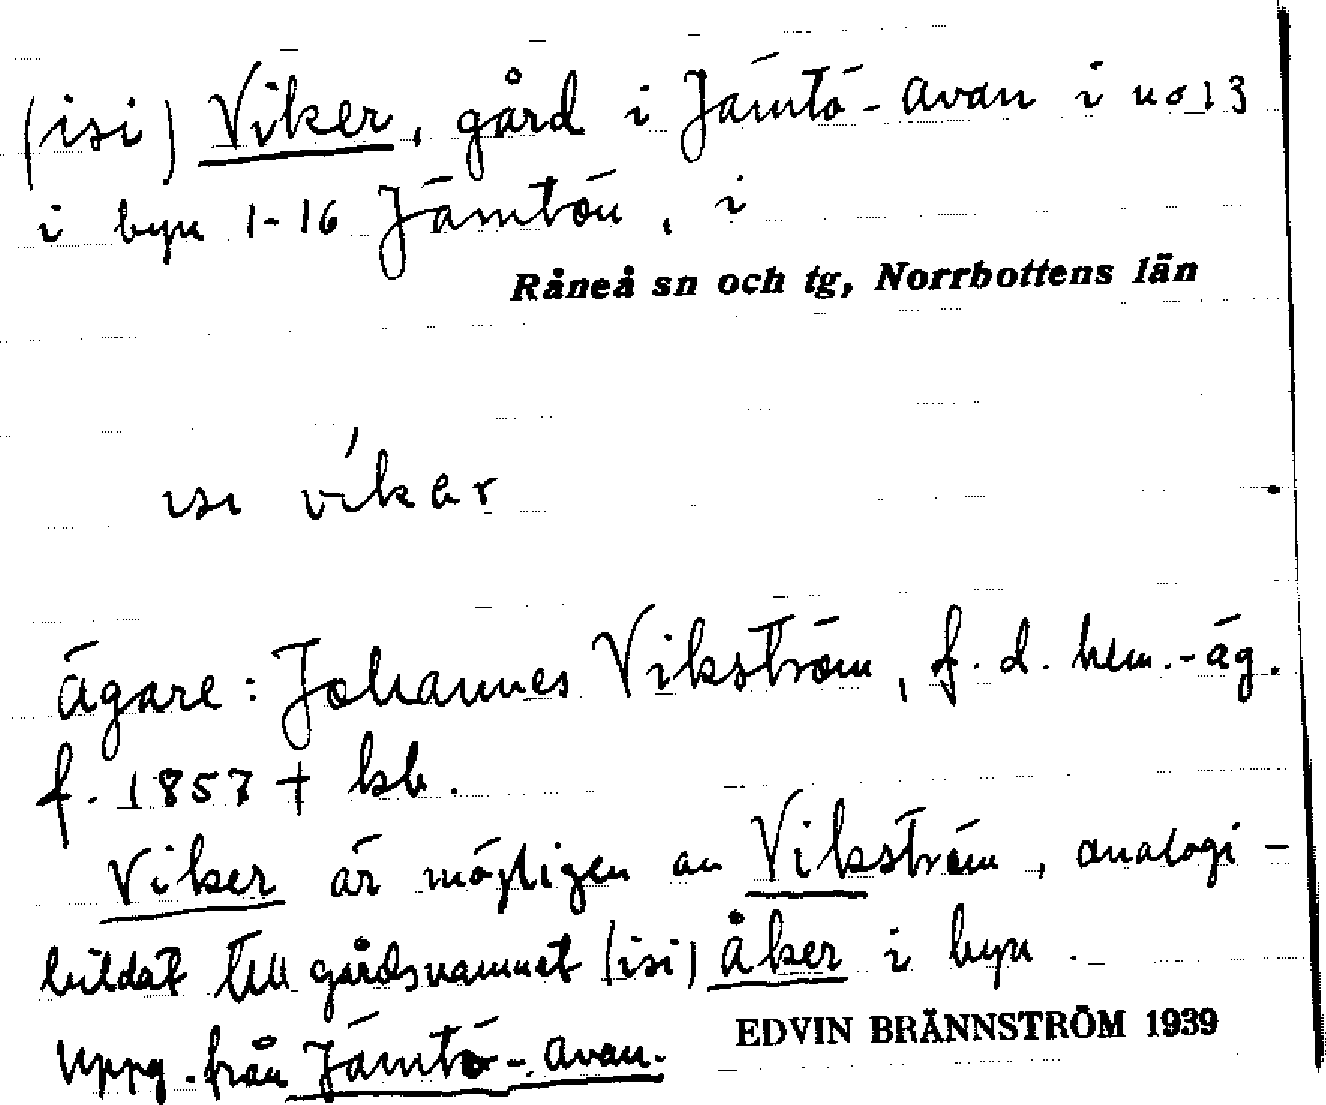 (isi) Viker, gård i Jämtö-avan i no 13
i byn 1-16 Jämtön, i
Råneå sn och tg, Norrbottens län
isi víkər
ägare: Johannes Vikström, f.d. hem.-äg.
f. 1857 † kb.
Viker är möjligen av Vikström, analogi-
bildat till gårdsnamnet (isi) åker i byn.
Uppg. från Jämtö-avan.
EDVIN BRÄNNSTRÖM 1939